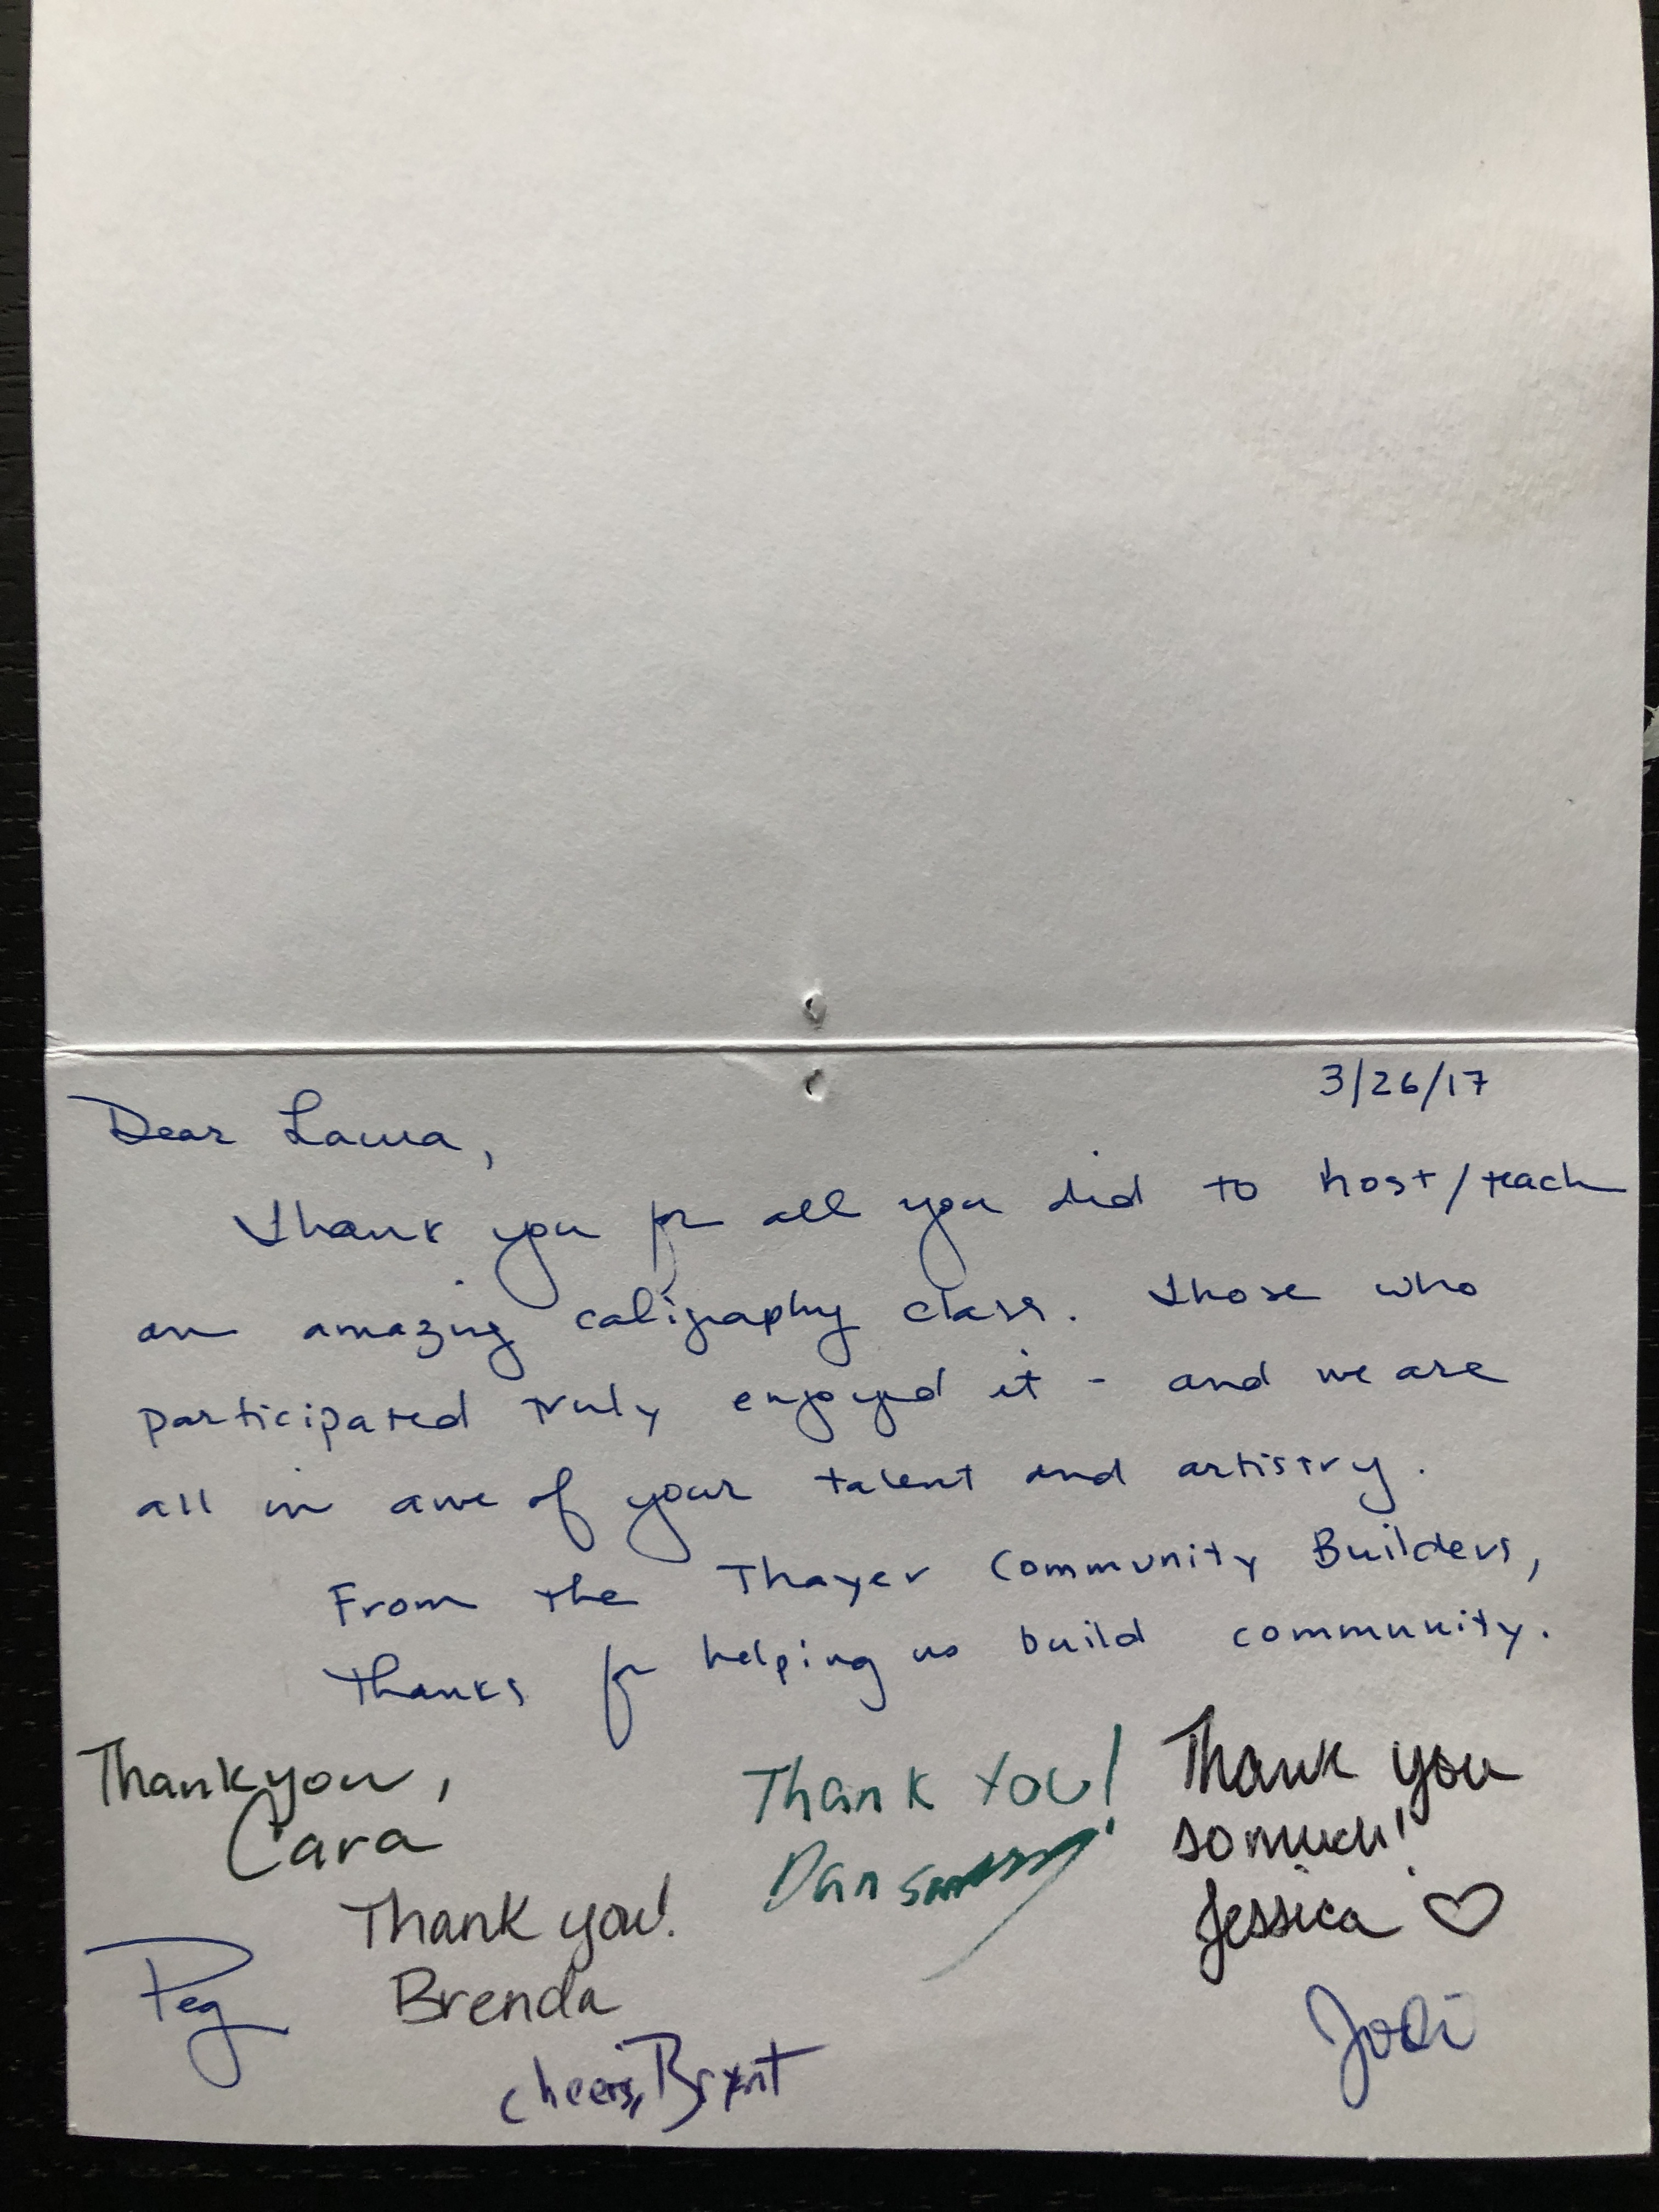 3/26/17
Dear Laura,
Thank you for all you did to host/teach
an amazing caligraphy class. Those who
participated truly enjoyed it - and we are
all in awe of your talent and artistry.
From the Thayer Community Builders,
Thanks for helping us build community.
Thank you,
Cara
Thank You!
Dan
Thank you
so much!
Jessica ♡
Thank you!
Brenda
Peg
Jodi
cheers, Bryant